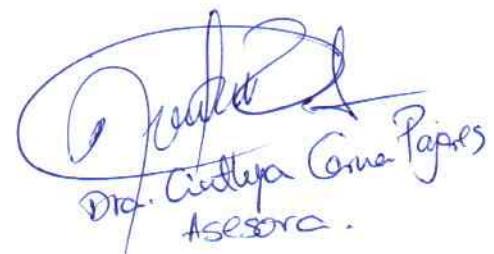 Dra. Cinthya Cerna Pajares
Asesora.